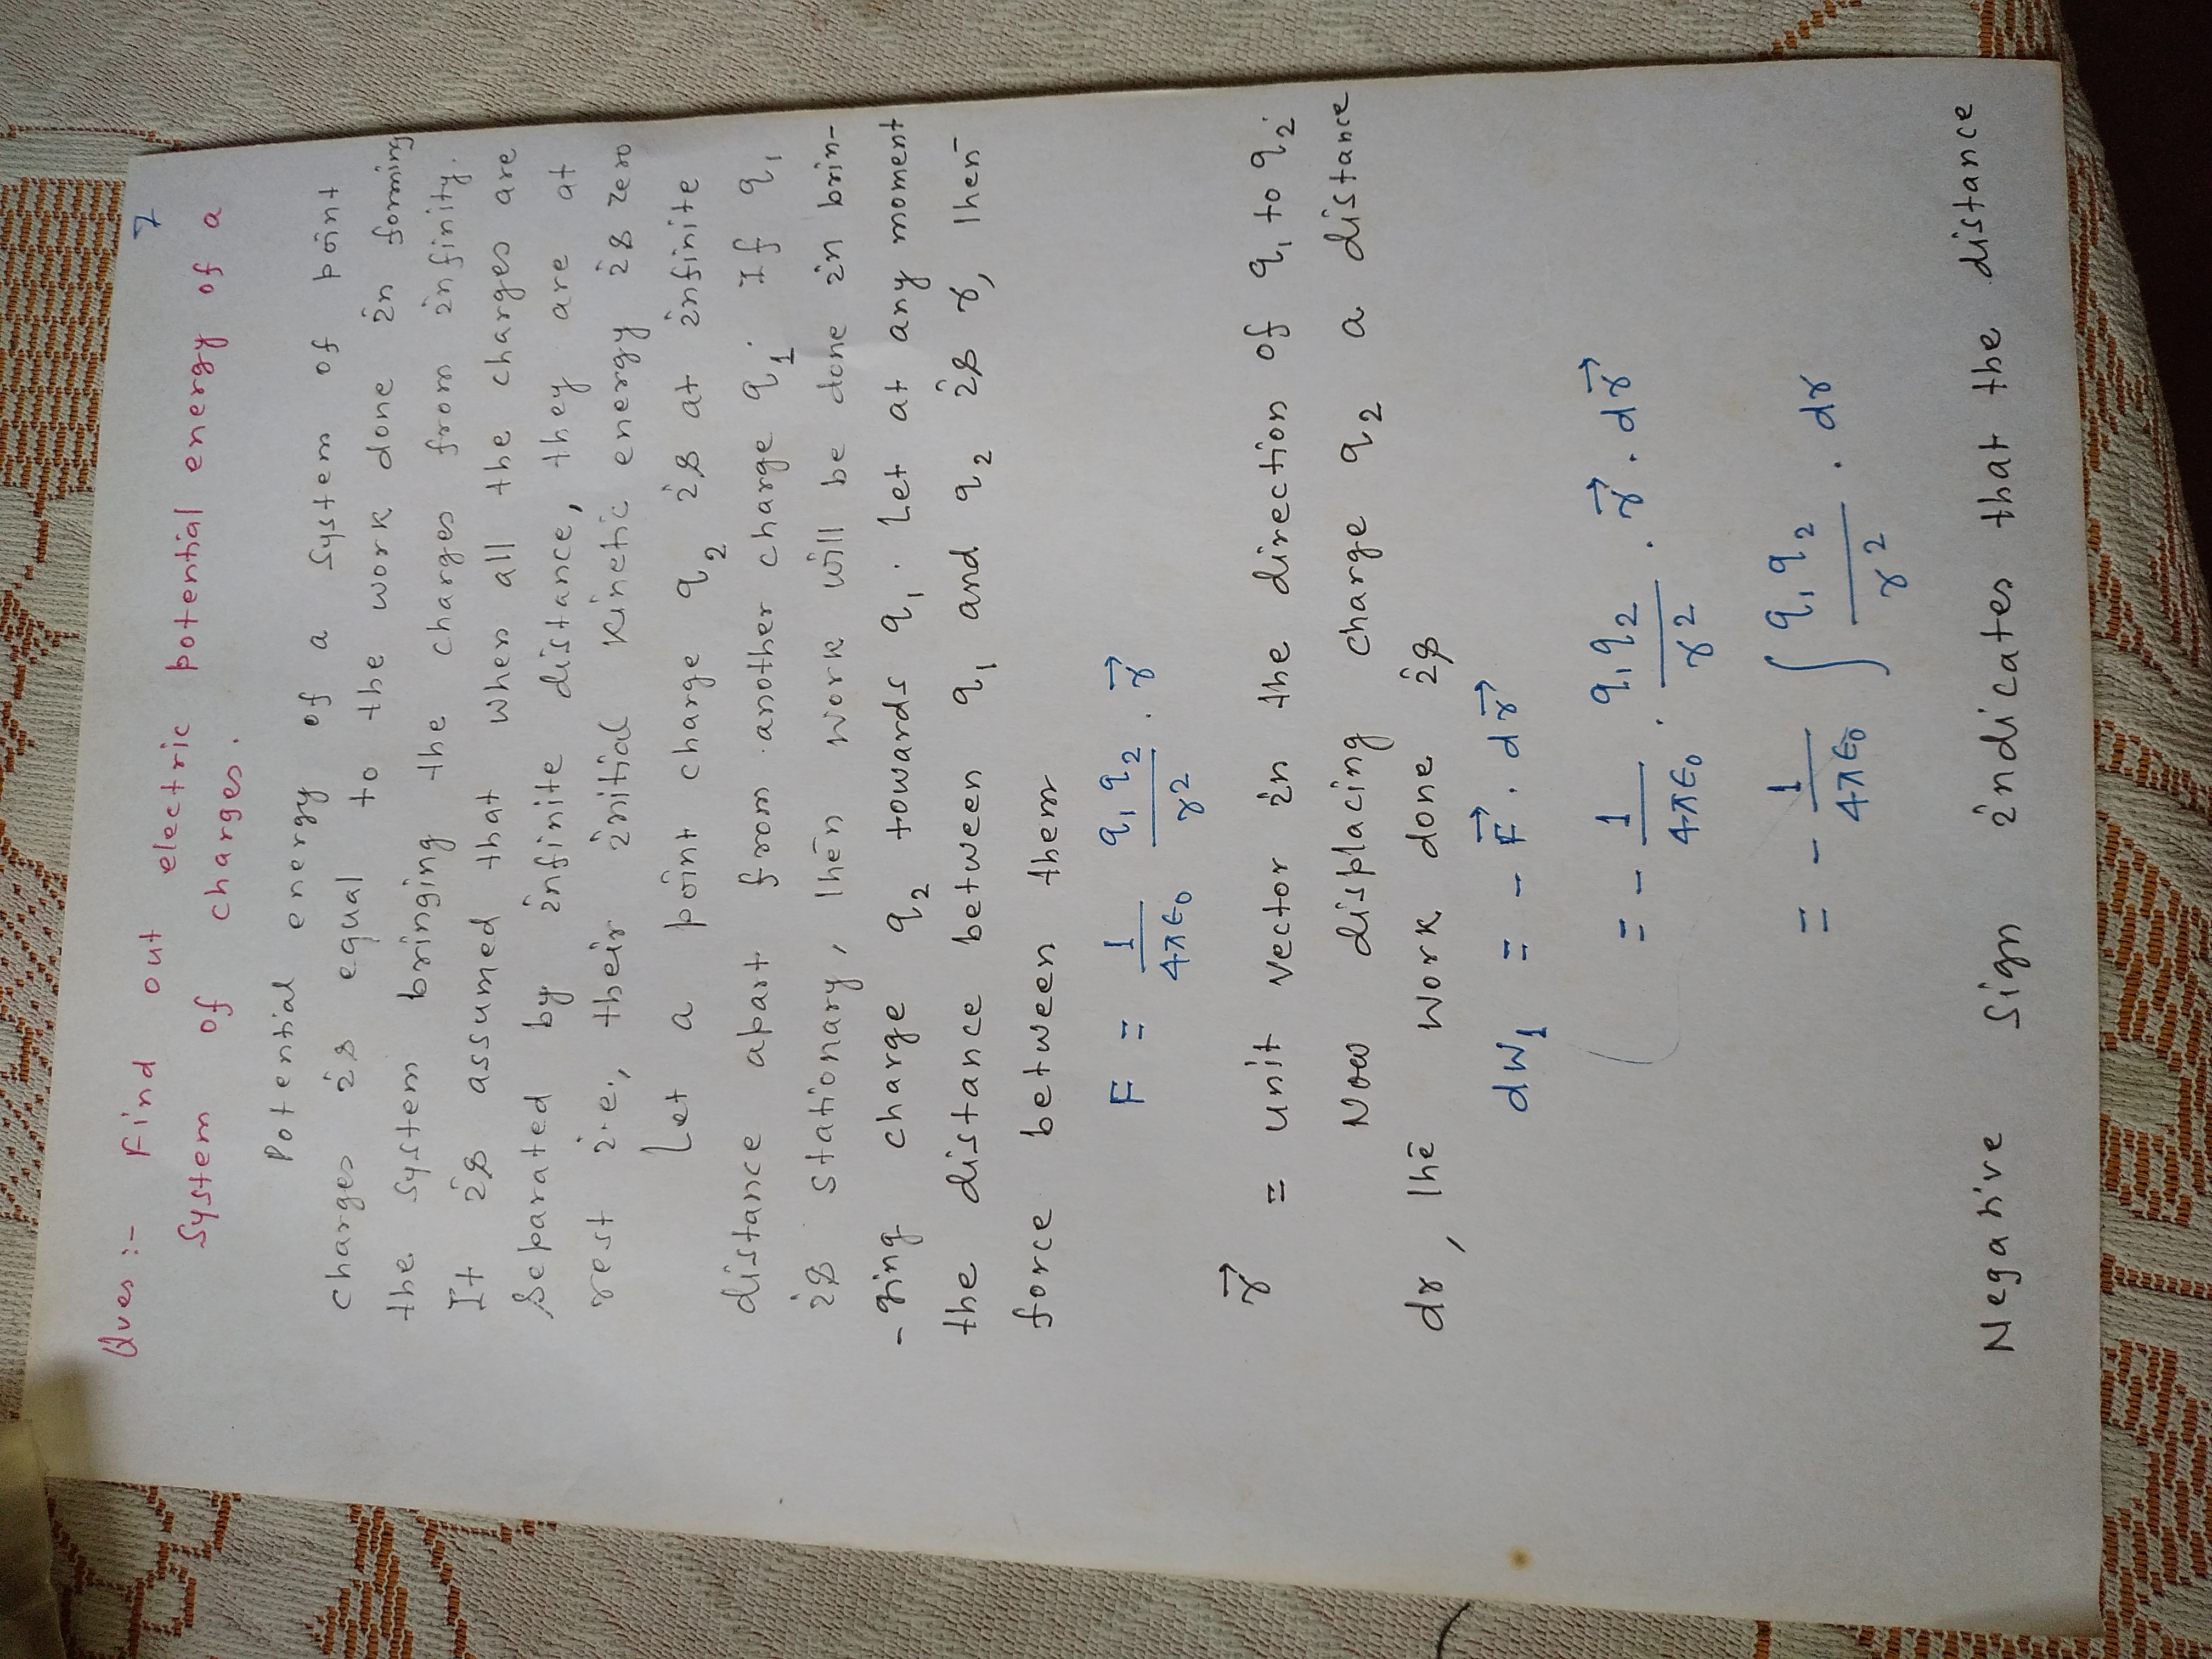 7
Ques :- Find out electric potential energy of a
System of charges.
Potential energy of a system of point
charges is equal to the work done in forming
the system bringing the charges from infinity.
It is assumed that when all the charges are
Separated by infinite distance, they are at
rest i.e., their initial kinetic energy is zero
Let a point charge q₂ is at infinite
distance apart from another charge q₁. If q₁
is stationary, then work will be done in brin-
-ging charge q₂ towards q₁. Let at any moment
the distance between q₁ and q₂ is r, then
force between them
F = 1/4πε₀ q₁q₂/r² . r⃗
r⃗ = unit vector in the direction of q₁ to q₂.
Now displacing charge q₂ a distance
dr, the work done is
dW₁ = - F⃗ . dr⃗
= - 1/4πε₀ . q₁q₂/r² . r⃗ . dr⃗
= - 1/4πε₀ ∫ q₁q₂/r² . dr
Negative sign indicates that the distance